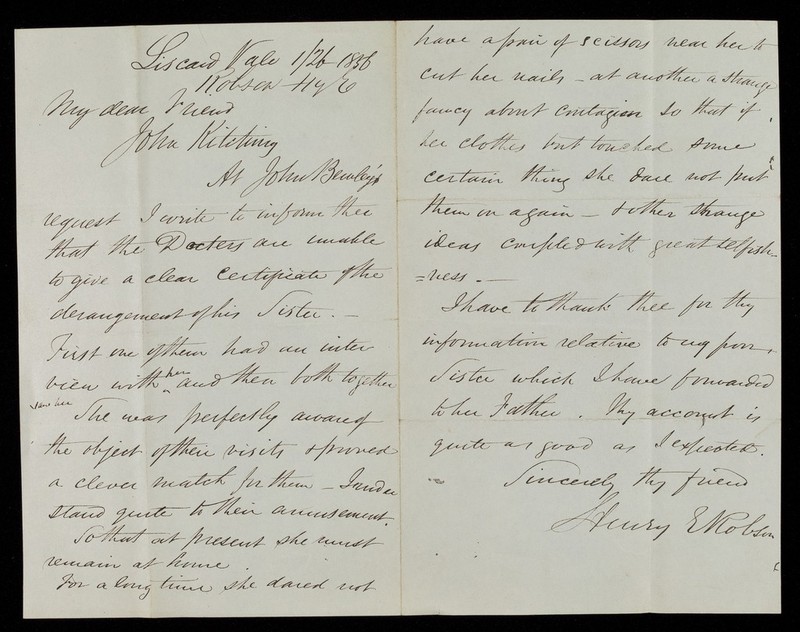 Liscard Vale 1/26 1856
Robson Hy E
My dear Friend
John Kitching
At John Bewley's
request I write to inform thee
that the Docters are unable
to give a clear Certificate of the
derangement of his Sister. —
First one of them had an inter
view with her and then both together
saw her
She was perfectly aware of
the object of their visits & proved
a clever match for them — I under
stand quite to their amusement.
So that at present she must
remain at home
For a long time she dared not
have a pair of scissors near her to
cut her nails — at another a strange
fancy about contagion so that if
her clothes but touched some
certain thing she dare not put
them on again — & other strange
ideas coupled with great selfish-
=ness. —
I have to thank thee for thy
information relative to my poor
Sister which I have forwarded
to her Father. Thy account is
quite as good as I expected.
Sincerely thy friend
Henry E Robson